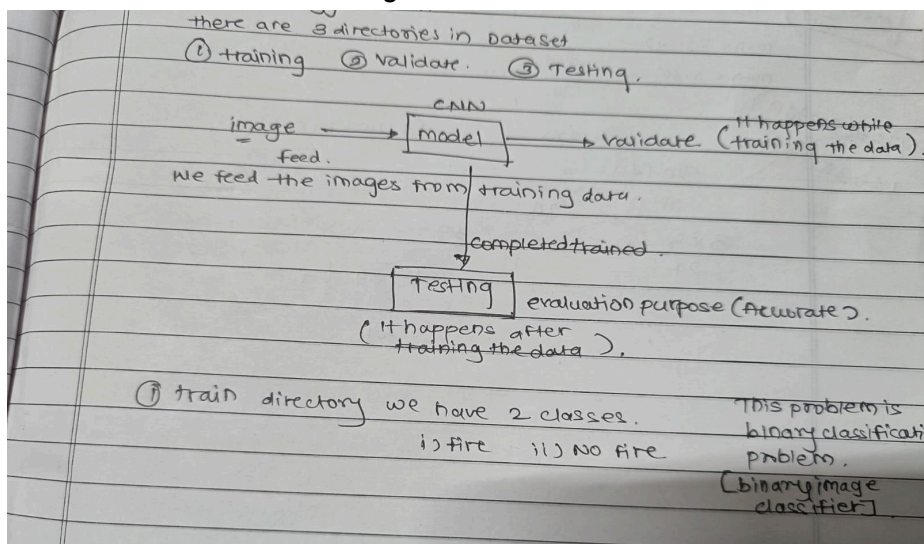 there are 3 directories in Dataset
① training ② validate. ③ Testing.
CNN
image → model → validate. (It happens while
training the data).
feed.
We feed the images from training data.
completed trained.
Testing
evaluation purpose (Accurate).
(It happens after
training the data).
① train directory we have 2 classes.
i) fire ii) NO fire
This problem is
binary classificati
problem.
[binary image
classifier]